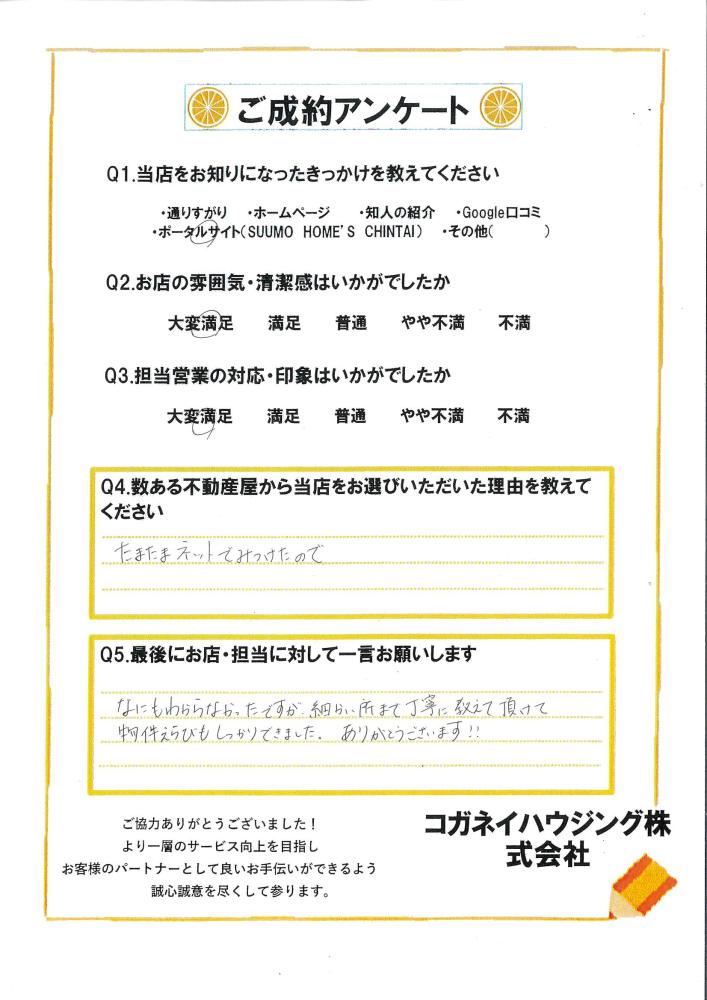 ご成約アンケート
Q1.当店をお知りになったきっかけを教えてください
・通りすがり ・ホームページ ・知人の紹介 ・Google口コミ
・ポータルサイト(SUUMO HOME'S CHINTAI) ・その他( )
Q2.お店の雰囲気・清潔感はいかがでしたか
大変満足 満足 普通 やや不満 不満
Q3.担当営業の対応・印象はいかがでしたか
大変満足 満足 普通 やや不満 不満
Q4.数ある不動産屋から当店をお選びいただいた理由を教えて
ください
たまたまネットでみつけたので
Q5.最後にお店・担当に対して一言お願いします
なにもわからなかったですが、細らい所まで丁寧に教えて頂けて
物件えらびもしっかりできました。 ありがとうございます!!
ご協力ありがとうございました!
より一層のサービス向上を目指し
お客様のパートナーとして良いお手伝いができるよう
誠心誠意を尽くして参ります。
コガネイハウジング株
式会社